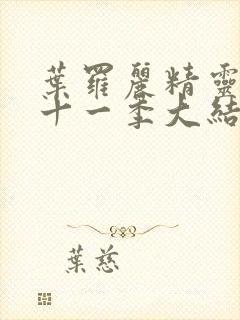 葉羅麗精靈
十一季大結
葉慈